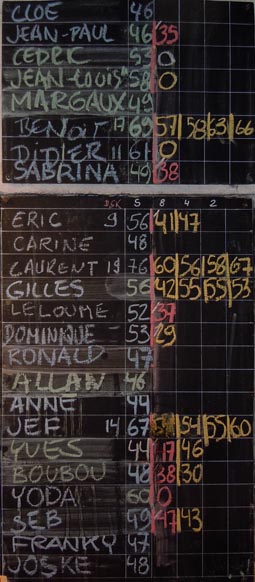 CLOE 46
JEAN-PAUL 46 35
CEDRIC 55 0
JEAN-LOUIS 58 0
MARGAUX 49
BENOIT 17 69 57 58 63 66
DIDIER 11 61 0
SABRINA 49 38
S 8 4 2
ERIC 9 56 41 47
CARINE 48
LAURENT 19 76 60 56 58 67
GILLES 56 42 55 55 53
LELOUME 52 37
DOMINIQUE 53 29
RONALD 47
ALLAN 46
ANNE 44
JEF 14 67 54 55 60
YVES 44 17 46
BOUBOU 48 38 30
YODA 60 0
SEB 59 47 43
FRANKY 47
JOSKE 48